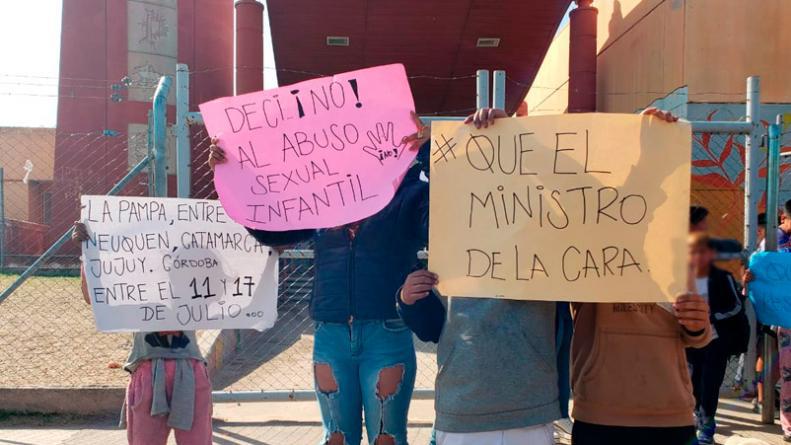 LA PAMPA, ENTRE
NEUQUEN, CATAMARCA,
JUJUY. CÓRDOBA
ENTRE EL 11 Y 17
DE JULIO...
DECI ¡NO!
AL ABUSO
SEXUAL
INFANTIL
¡NO!
#QUE EL
MINISTRO
DE LA CARA.